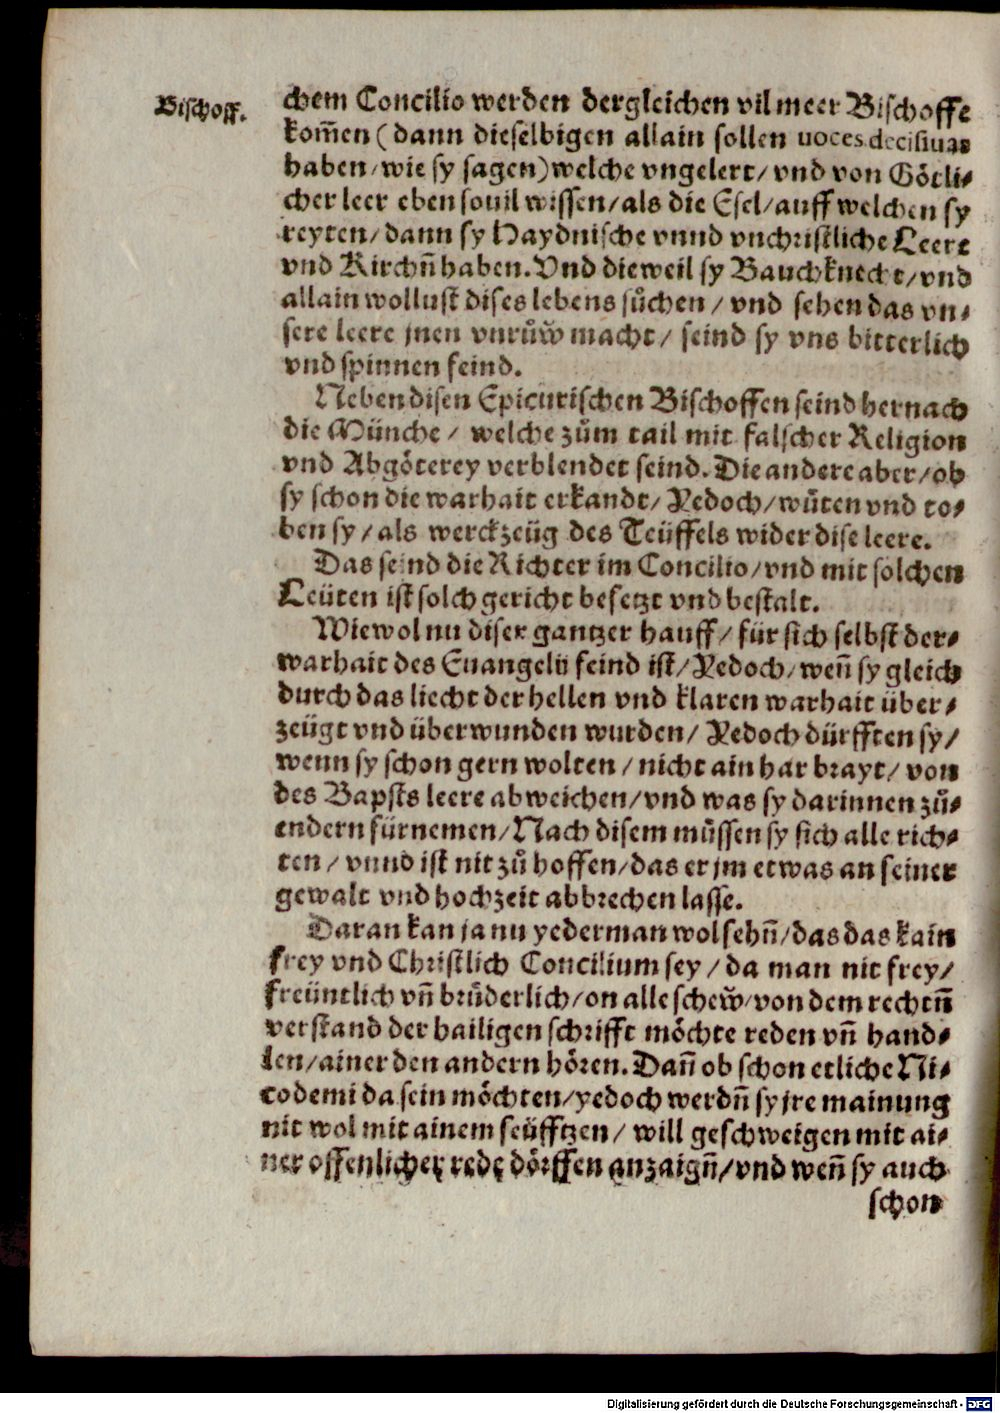 Bischoff.
chem Concilio werden dergleichen vil meer Bischoffe
kom̄en (dann dieselbigen allain sollen uoces decisiuas
haben/wie sy sagen) welche vngelert/ vnd von Götli⸗
cher leer eben souil wissen/als die Esel/auff welchen sy
reyten/dann sy Haydnische vnnd vnchristliche Leere
vnd Kirchn̄ haben. Vnd dieweil sy Bauchknecht/vnd
allain wollust dises lebens sůchen/ vnd sehen das vn⸗
sere leere jnen vnrůw̆ macht/ seind sy vns bitterlich
vnd spinnen feind.
Neben disen Epicurischen Bischoffen seind hernach
die Münche/ welche zům tail mit falscher Religion
vnd Abgöterey verblendet seind. Die andere aber/ob
sy schon die warhait erkandt/Yedoch/wüten vnd to⸗
ben sy/als werckzeüg des Teüffels wider dise leere.
Das seind die Richter im Concilio/vnd mit solchen
Leüten ist solch gericht besetzt vnd bestalt.
Wiewol nu diser gantzer hauff/für sich selbst der⸗
warhait des Euangelij feind ist/Yedoch/wen̄ sy gleich
durch das liecht der hellen vnd klaren warhait über⸗
zeügt vnd überwunden wurden/Yedoch dürfften sy/
wenn sy schon gern wolten/nicht ain har brayt/von
des Bapsts leere abweichen/vnd was sy darinnen zů⸗
endern fürnemen/Nach disem müssen sy sich alle rich⸗
ten/vnnd ist nit zů hoffen/das er jm etwas an seiner
gewalt vnd hochzeit abbrechen lasse.
Daran kan ja nu yederman wol sehn̄/das das kain
frey vnd Christlich Concilium sey/da man nit frey/
freüntlich vn̄ brüderlich/on alle schew̆/von dem rechtn̄
verstand der hailigen schrifft möchte reden vn̄ hand⸗
len/ainer den andern hören. Dan̄ ob schon etliche Ni⸗
codemi da sein möchten/yedoch werdn̄ sy jre mainung
nit wol mit ainem seüfftzen/ will geschweigen mit ai⸗
ner offenlicher rede dörffen anzaign̄/vnd wen̄ sy auch
schon
Digitalisierung gefördert durch die Deutsche Forschungsgemeinschaft - DFG